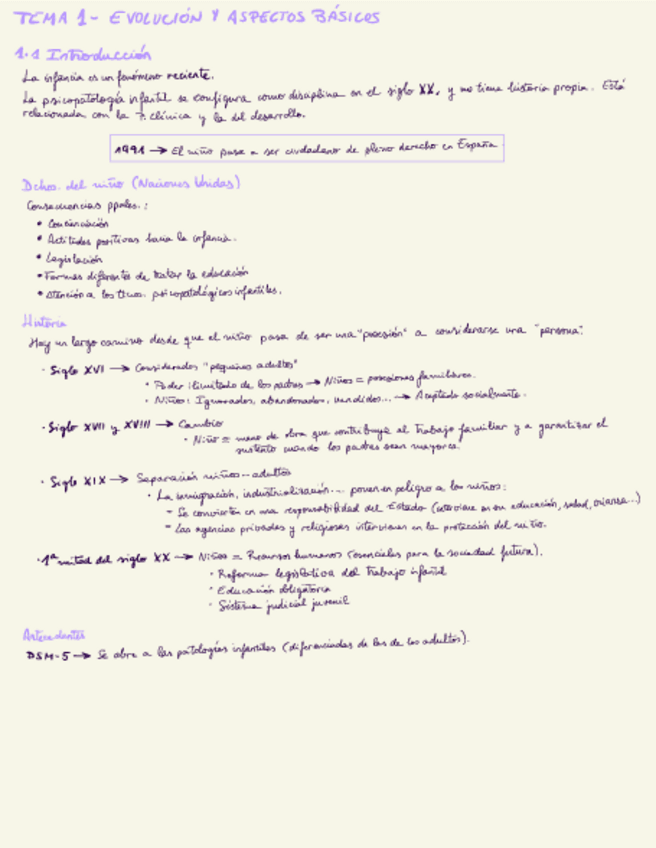 TEMA 1- EVOLUCIÓN Y ASPECTOS BÁSICOS
1.1 Introducción
La infancia es un fenómeno reciente.
La psicopatología infantil se configura como disciplina en el siglo XX, y no tiene historia propia. Está
relacionada con la clínica y la del desarrollo.
1991 → El niño pasa a ser ciudadano de pleno derecho en España.
Dchos. del niño (Naciones Unidas)
Consecuencias ppales.:
• Concienciación
• Actitudes positivas hacia la infancia.
• Legislación
• Formas diferentes de tratar la educación
• Atención a los psicopatológicos infantiles.
Historia
Hay un largo camino desde que el niño pasa de ser una "posesión" a considerarse una "persona".
· Siglo XVI → Considerados "pequeños adultos"
• Poder ilimitado de los padres → Niños = posesiones familiares.
• Niños: Ignorados, abandonados, vendidos... → Aceptado socialmente.
· Siglo XVII y XVIII → Cambio
• Niño = mano de obra que contribuye al trabajo familiar y a garantizar el
sustento cuando los padres sean mayores.
· Siglo XIX → Separación niños-adultos
• La inmigración, industrialización... ponen en peligro a los niños:
- Se convierten en una responsabilidad del Estado (interviene en su educación, salud, crianza...)
- Las agencias privadas y religiosas intervienen en la protección del niño.
· 1ª mitad del siglo XX → Niños = Recursos humanos (esenciales para la sociedad futura).
• Reforma legislativa del trabajo infantil
• Educación obligatoria
• Sistema judicial juvenil
Antecedentes
DSM-5 → Se abre a las patologías infantiles (diferenciadas de las de los adultos).